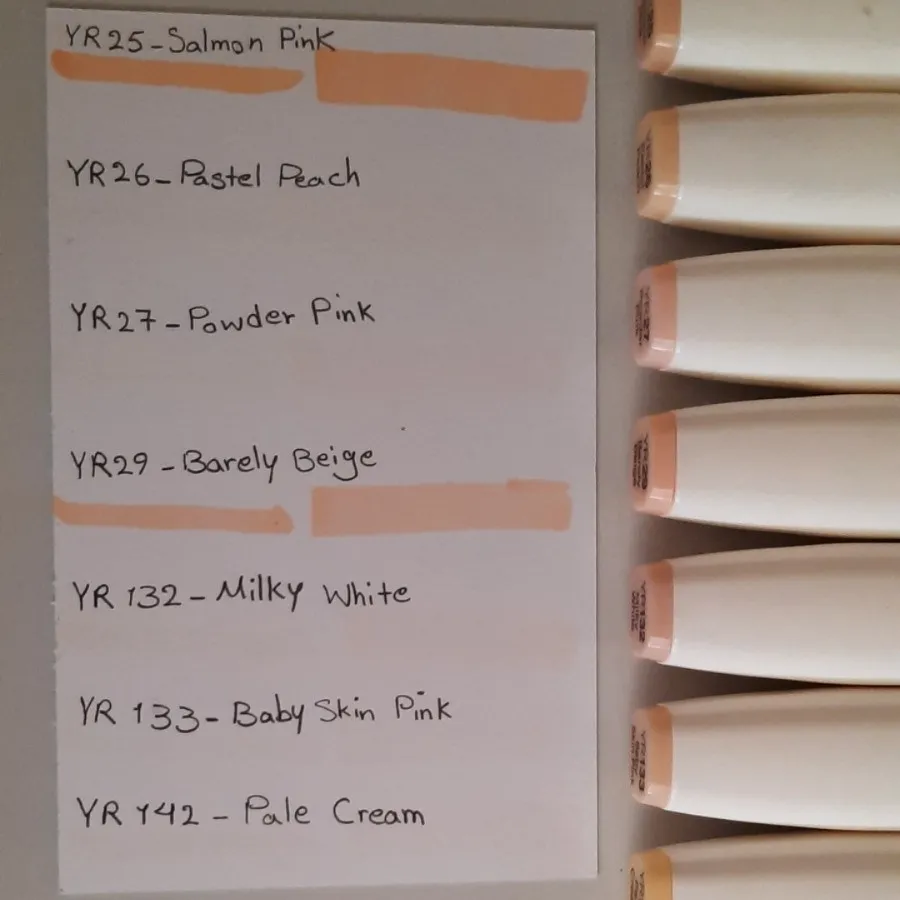 YR25-Salmon Pink
YR26-Pastel Peach
YR27-Powder Pink
YR29-Barely Beige
YR 132-Milky White
YR 133-Baby Skin Pink
YR 142-Pale Cream
YR26
YR27
YR29
YR132
YR133